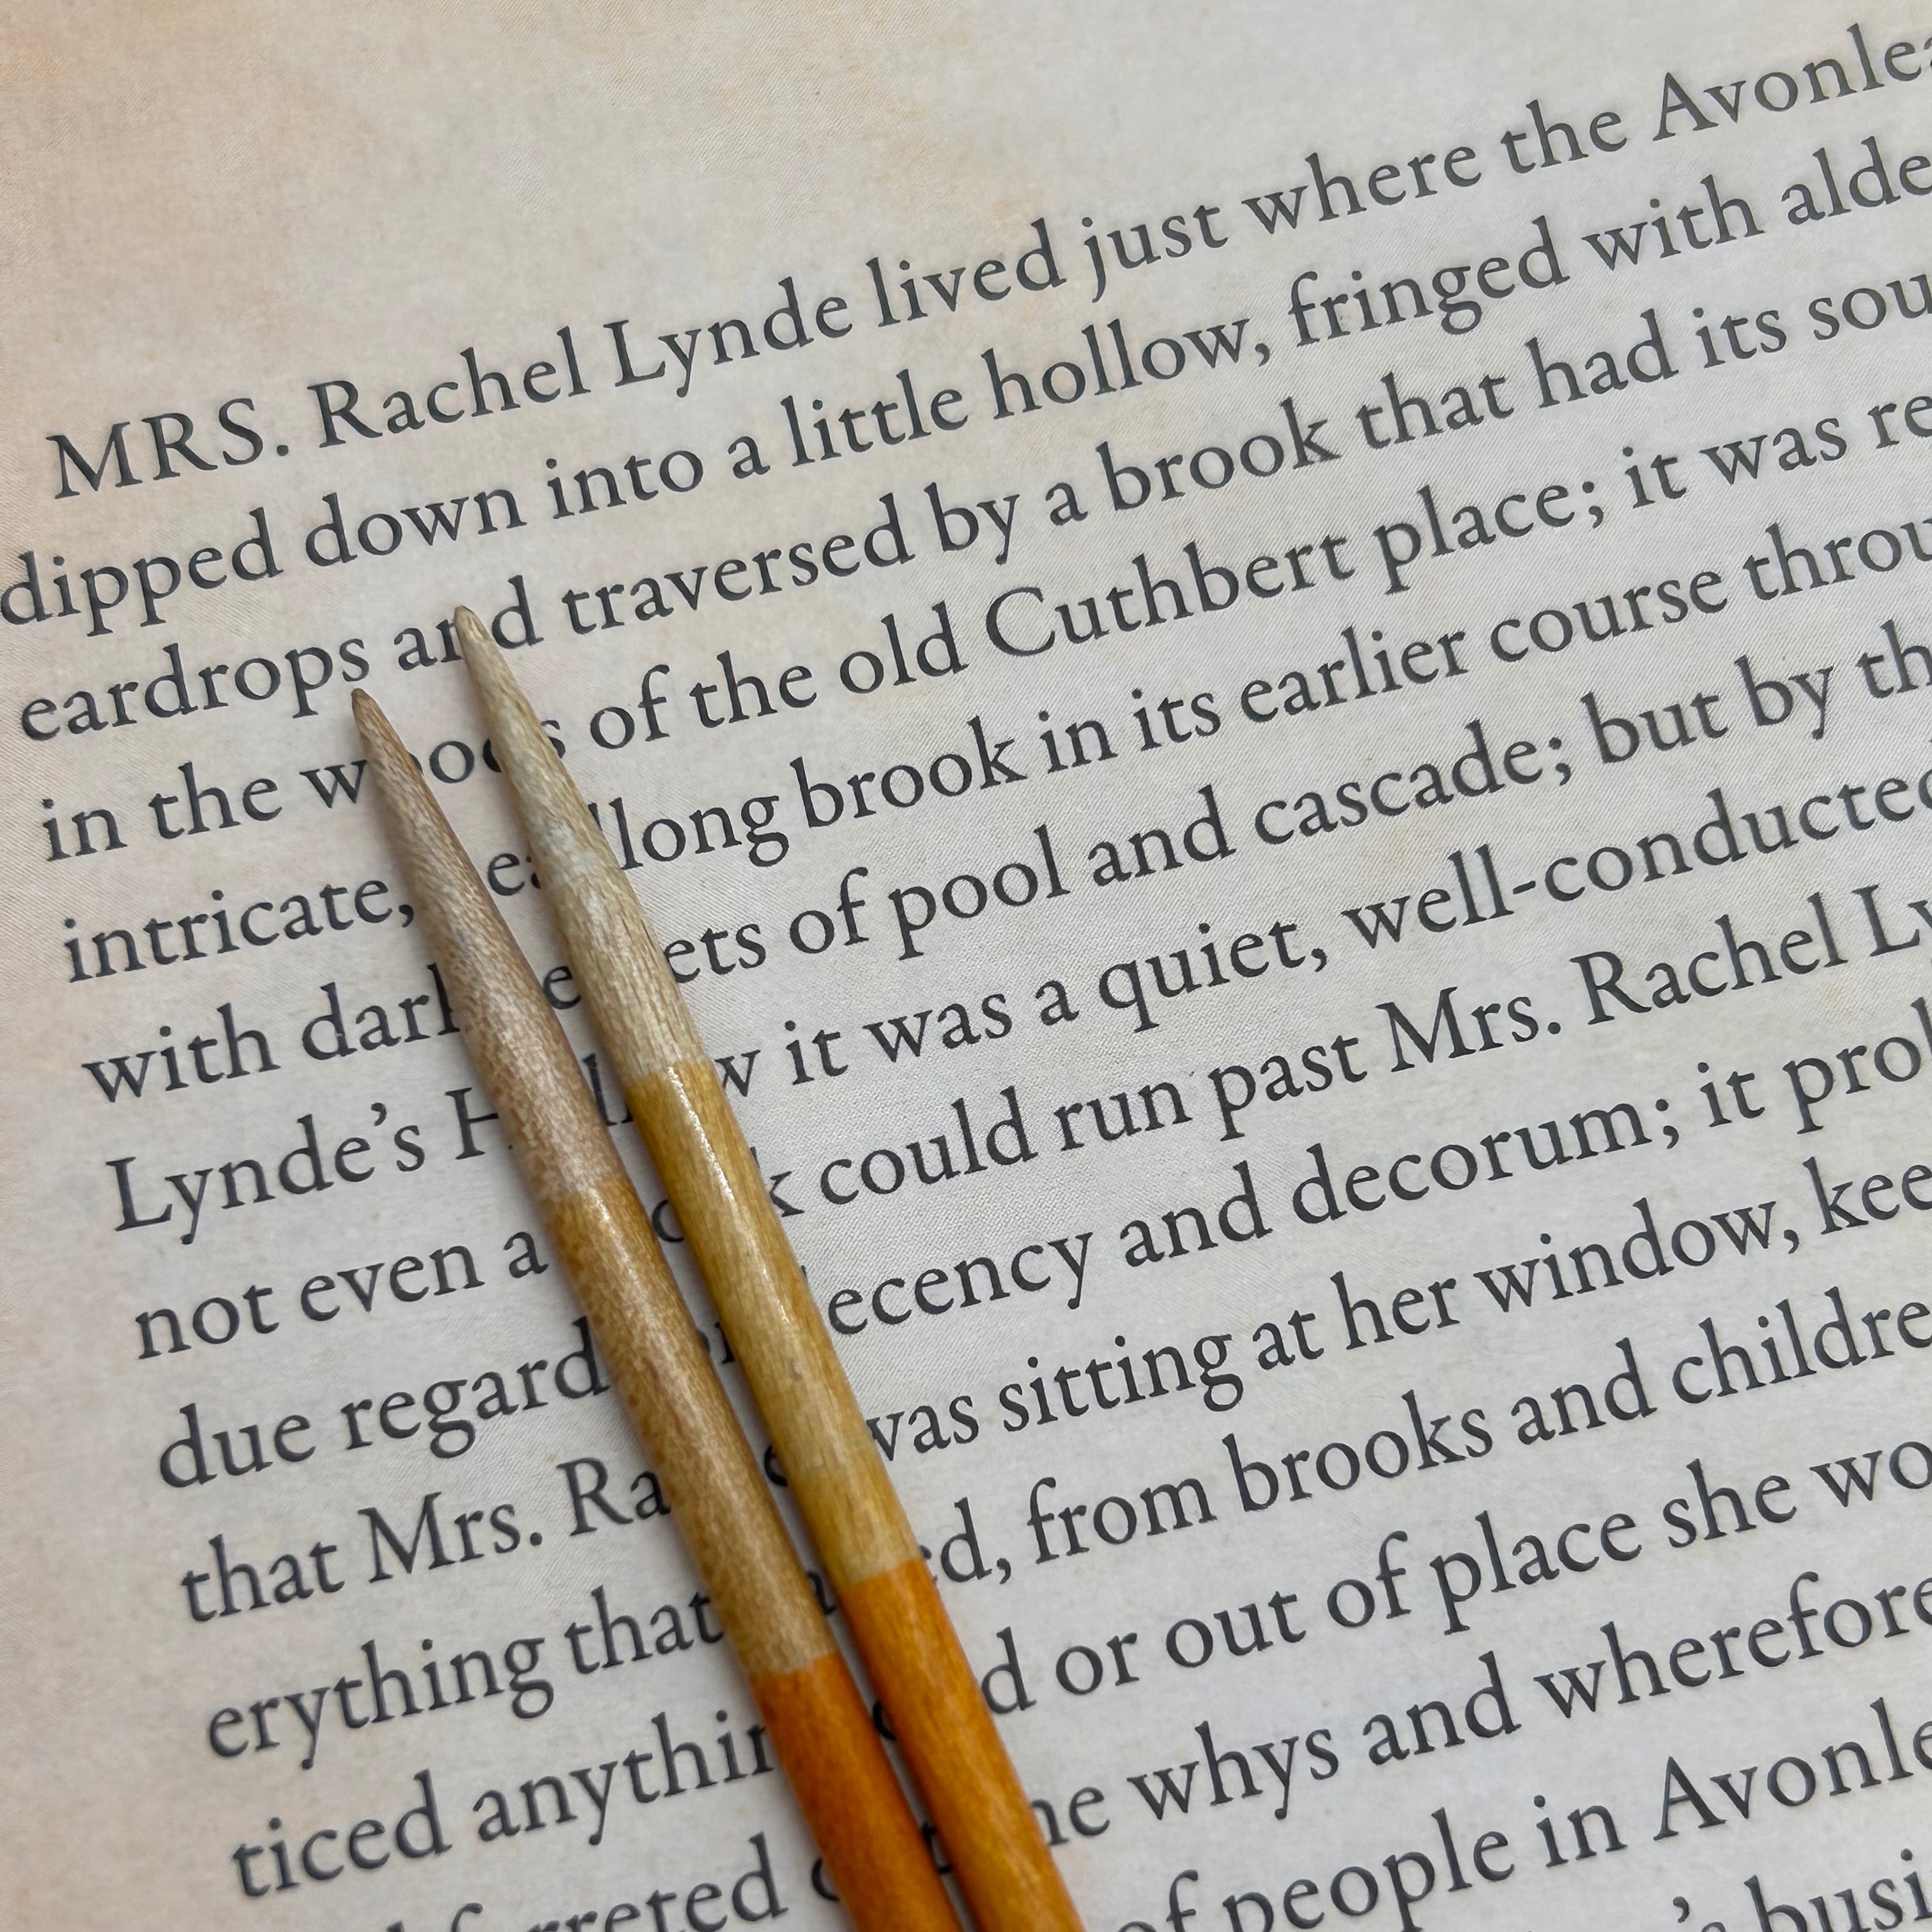 MRS. Rachel Lynde lived just where the Avonlea
dipped down into a little hollow, fringed with alde
eardrops and traversed by a brook that had its sou
in the woods of the old Cuthbert place; it was re
intricate, long brook in its earlier course throu
with dark ets of pool and cascade; but by th
Lynde's H w it was a quiet, well-conducted
not even a k could run past Mrs. Rachel Ly
due regard ecency and decorum; it prob
that Mrs. Ra was sitting at her window, kee
erything that ed, from brooks and childre
ticed anythin d or out of place she wo
ferreted he whys and wherefore
of people in Avonle
's busi